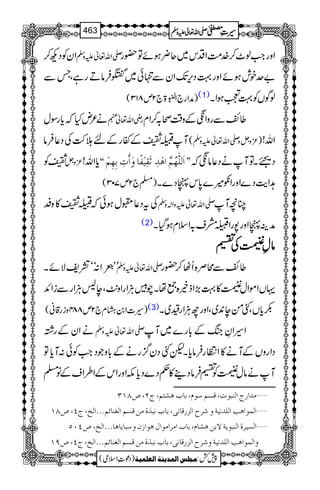 سیرتِ مصطفی صلی اللہ تعالیٰ علیہ وسلم 463
اور جب لوٹ کر خدمت اقدس میں حاضر ہوئے تو حضور صلی اللہ تعالیٰ علیہ وسلم ان کو دیکھ کر
خوش ہوئے اور بہت دیر تک ان سے تنہائی میں گفتگو فرماتے رہے، جس سے
لوگوں کو بہت تعجب ہوا۔ (1) (مدارج النبوۃ ج۲ ص۳۱۸)
طائف سے روانگی کے وقت صحابہ کرام رضی اللہ تعالیٰ عنہم نے عرض کیا کہ یا رسول
اللہ! (عزوجل و صلی اللہ تعالیٰ علیہ وسلم) آپ قبیلہ ثقیف کے کفار کے لئے ہلاکت کی دعا فرما
دیجئے۔ تو آپ نے دعا مانگی کہ "اَللّٰھُمَّ اھْدِ ثَقِیْفًا وَّأْتِ بِھِمْ" یا اللہ! عزوجل ثقیف کو
ہدایت دے اور ان کو میرے پاس پہنچا دے۔ (مسلم ج۲ ص۳۰۷)
چنانچہ آپ صلی اللہ تعالیٰ علیہ والہ وسلم کی یہ دعا مقبول ہوئی کہ قبیلہ ثقیف کا وفد
مدینہ پہنچا اور پورا قبیلہ مشرف بہ اسلام ہو گیا۔ (2)
مالِ غنیمت کی تقسیم
طائف سے محاصرہ اُٹھا کر حضور صلی اللہ تعالیٰ علیہ وسلم "جعرانہ" تشریف لائے۔
یہاں اموالِ غنیمت کا بہت بڑا ذخیرہ جمع تھا۔ چوبیس ہزار اونٹ، چالیس ہزار سے زائد
بکریاں، کئی من چاندی، اور چھ ہزار قیدی۔ (3) (سیرت ابن ہشام ج۲ ص۴۸۸ و زرقانی)
اسیرانِ جنگ کے بارے میں آپ صلی اللہ تعالیٰ علیہ وسلم نے ان کے رشتہ
داروں کے آنے کا انتظار فرمایا۔ لیکن کئی دن گزرنے کے باوجود جب کوئی نہ آیا تو
آپ نے مالِ غنیمت کو تقسیم فرما دینے کا حکم دے دیا مکہ اور اس کے اطراف کے نومسلم
......مدارج النبوت، قسم سوم، باب ھشتم، ج۲، ص۳۱۸
......المواھب اللدنیۃ و شرح الزرقانی، باب نبذۃ من قسم الغنائم...الخ، ج٤، ص۱۸
......السیرۃ النبویۃ لابن ھشام، باب امر اموال ھوازن و سبایاھا...الخ، ص٥٠٤
والمواھب اللدنیۃ و شرح الزرقانی، باب نبذۃ من قسم الغنائم...الخ، ج٤، ص۱۹
پیش کش: مجلس المدینۃ العلمیۃ (دعوتِ اسلامی)